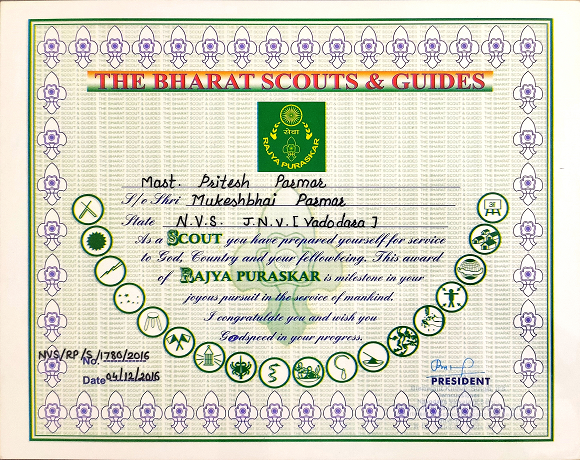 THE BHARAT SCOUTS & GUIDES
सेवा
RAJYA PURASKAR
Mast. Pritesh Parmar
S/o Shri Mukeshbhai Parmar
State N.V.S. J.N.V. [Vadodara]
As a SCOUT you have prepared yourself for service
to God, Country and your fellowbeing. This award
of RAJYA PURASKAR is milestone in your
joyous pursuit in the service of mankind.
I congratulate you and wish you
Godspeed in your progress.
No NVS/RP/S/1780/2016
Date 04/12/2016
PRESIDENT